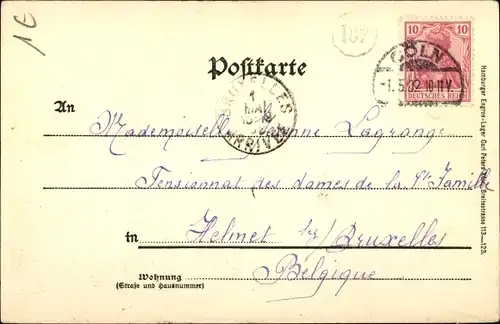 1€
107
10 10
CÖLN
-1.5.02.10-11V.
DEUTSCHES REICH
Postkarte
BRUXELLES
1
MAI
ARRIVÉE
An
Mademoiselle Jeanne Lagrange
Pensionnat des dames de la Ste Famille
in
Helmet s/ Bruxelles
Belgique
Wohnung
(Straße und Hausnummer)
Hamburger Engros-Lager Carl Peters, Cöln, Breitestrasse 113—123.